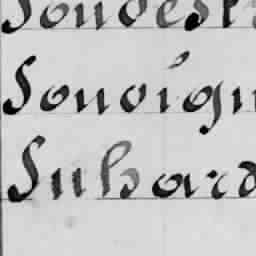 Sonoest
Sonoign
Suhard